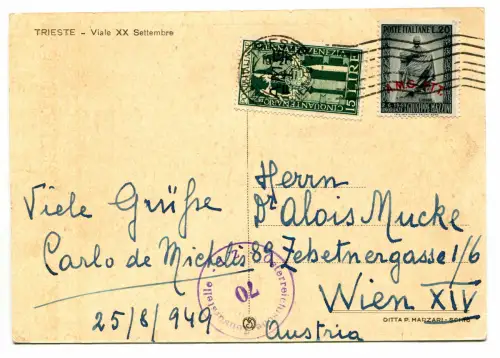 TRIESTE - Viale XX Settembre
POSTE ITALIANE L.20
CINQUANTENARIO
15 LIRE
Herrn
Dr Alois Mucke
89 Zehetnergasse 1/6
Wien XIV
Austria
Viele Grüße
Carlo de Michelis
25/8/949
70